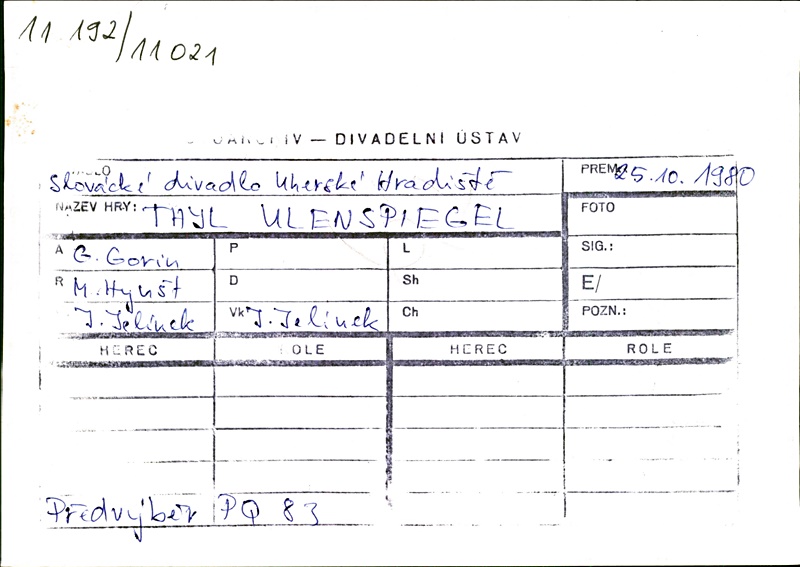 11 192/11021
IV — DIVADELNÍ ÚSTAV
Slovácké divadlo Uherské Hradiště
PREM. 25.10. 1980
NÁZEV HRY: THYL ULENSPIEGEL
FOTO
A G. Gorin P L SIG.:
R M. Hynšt D Sh E/
J. Jelínek Vk J. Jelínek Ch POZN.:
HEREC OLE HEREC ROLE
Předvýběr PQ 83